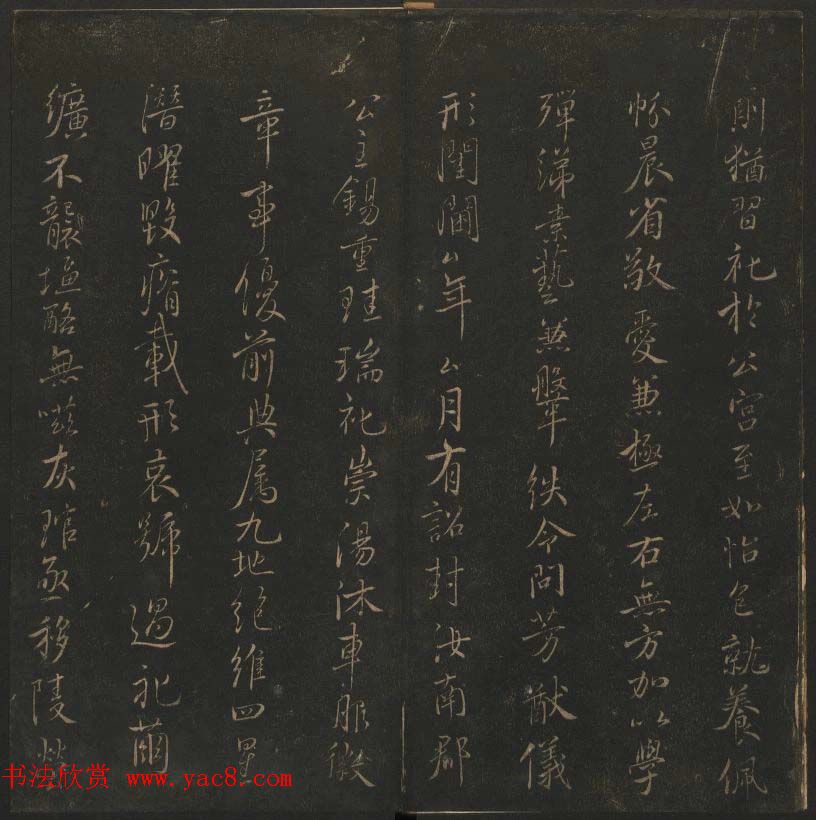 則猶習礼於公宮至如怡色就養佩
帉晨省敬愛兼極左右無方加以學
殫綈素藝兼鞶紩令問芳猷儀
形閨閫厶年厶月有詔封汝南郡
公主錫重珪瑞礼崇湯沐車服徽
章事優前典属九地絕維四星
潛曜毀瘠載形哀號過礼繭
纊不襲塩酪無嗞灰琯亟移陵塋
书法欣赏 www.yac8.com